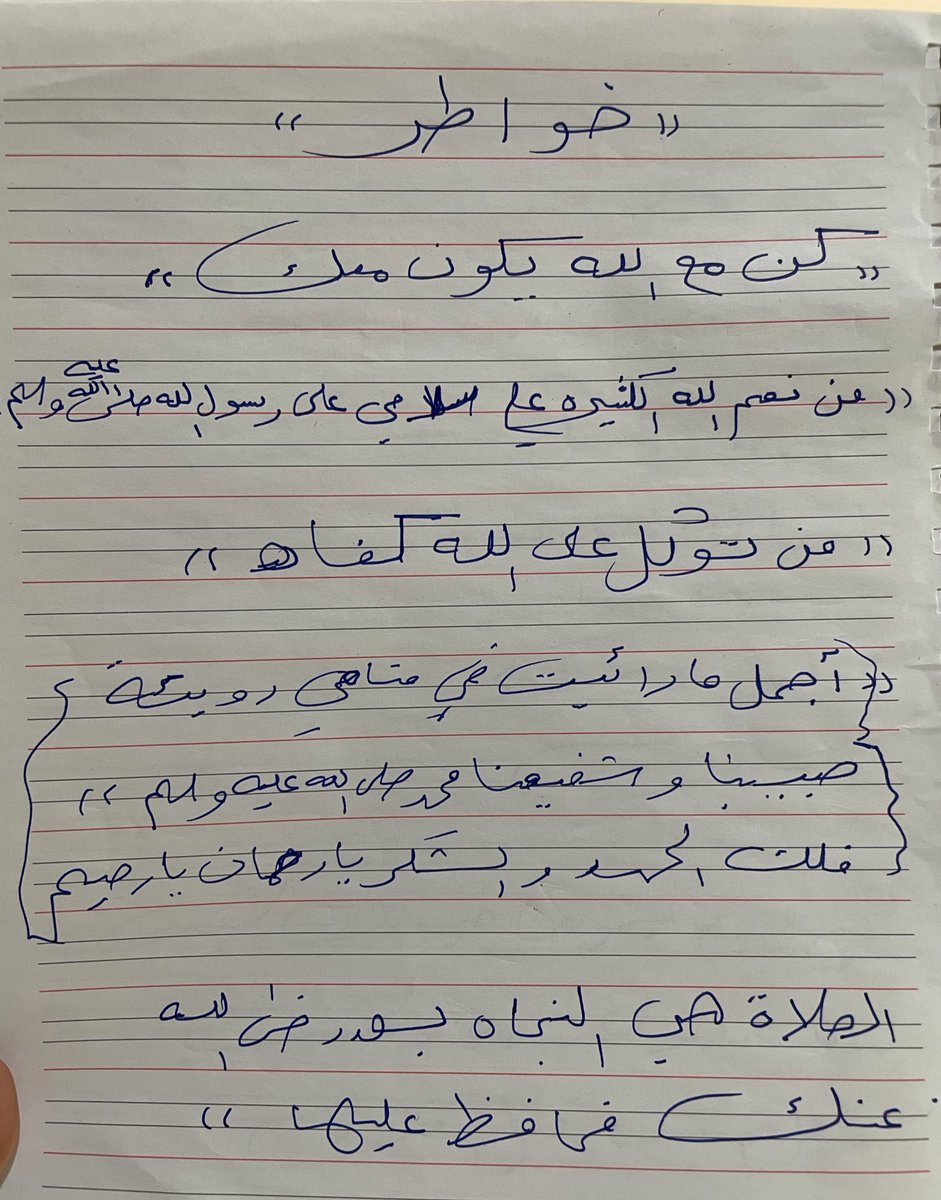 « خواطر »
« كن مع الله يكون معك »
« من نعم الله الكثيره علي سلامي على رسول الله صلى الله عليه وسلم
« من توكل على الله كفاه »
« أجمل مارائيت في منامي رويئة
حبيبنا وشفيعنا محمد صلى الله عليه وسلم »
فلك الحمد والشكر يارحمان يارحيم
الصلاة هي النجاه بعد رضى الله
عنك فحافظ عليها »